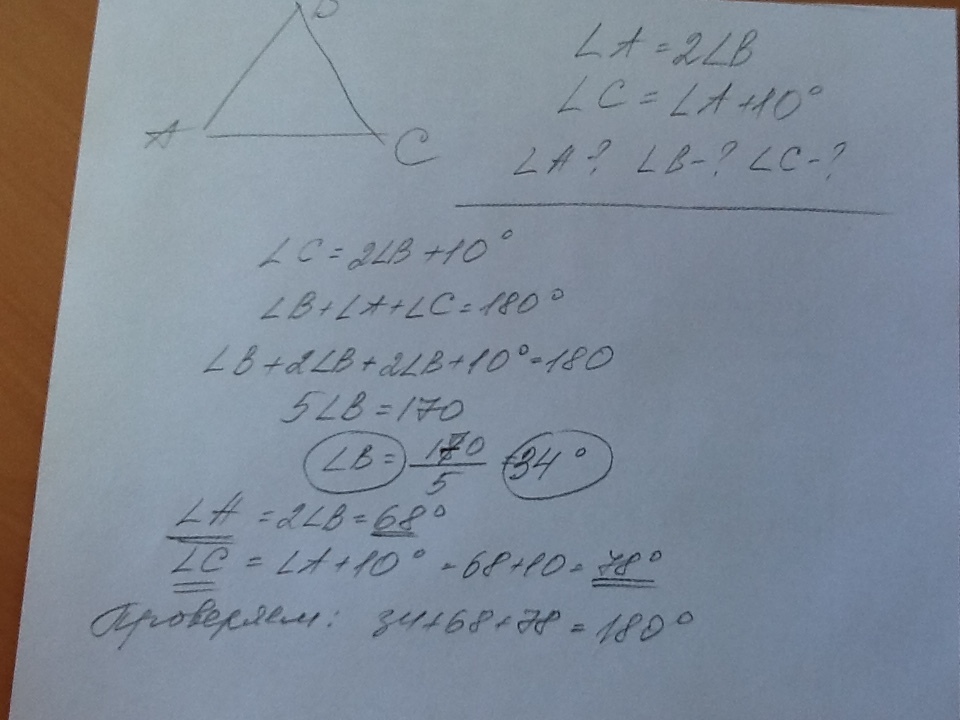 B
∠A = 2∠B
∠C = ∠A+10°
A
C
∠A ? ∠B-? ∠C-?
∠C = 2∠B+10°
∠B+∠A+∠C=180°
∠B+2∠B+2∠B+10°=180
5∠B=170
∠B = 170/5 = 34°
∠A = 2∠B = 68°
∠C = ∠A+10° = 68+10 = 78°
Проверяем: 34+68+78 = 180°